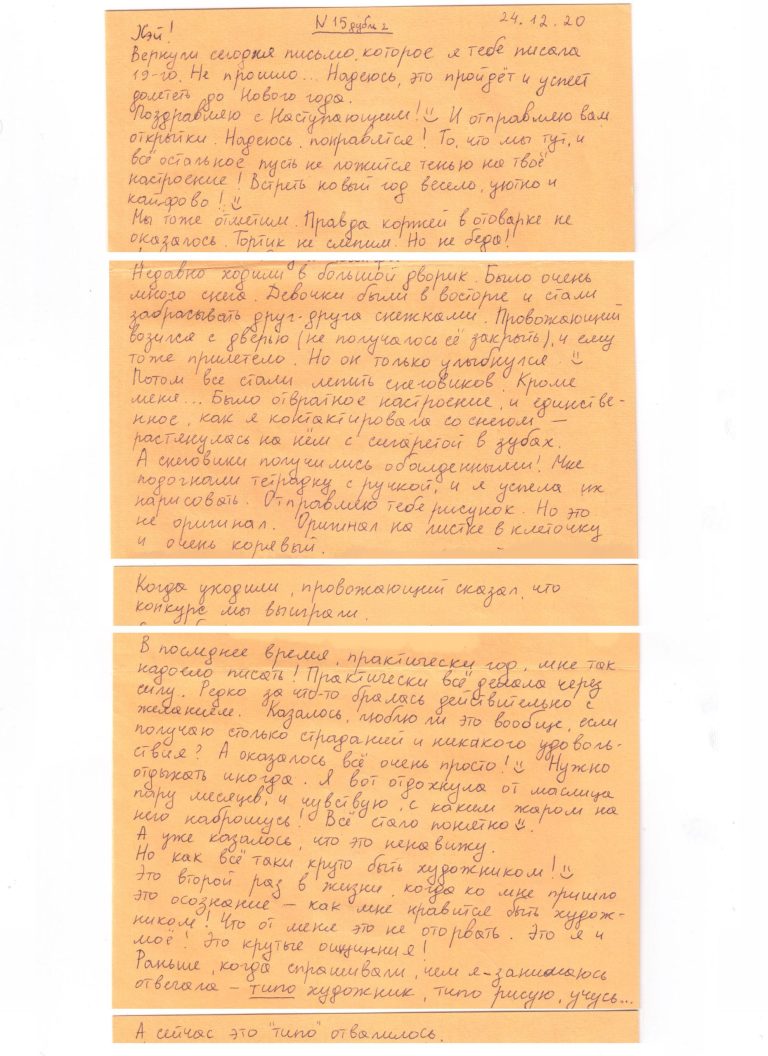 N 15 дубль 2
24.12.20
Кэй!
Вернули сегодня письмо, которое я тебе писала
19-го. Не прошло... Надеюсь, это пройдёт и успеет
долететь до Нового года.
Поздравляю с Наступающим! И отправляю вам
открытки. Надеюсь, понравятся! То, что мы тут, и
всё остальное пусть не ложится тенью на твоё
настроение! Встреть новый год весело, уютно и
кайфово!
Мы тоже отметим. Правда коржей в отоварке не
оказалось. Тортик не слепим. Но не беда!
Недавно ходили в большой дворик. Было очень
много снега. Девочки были в восторге и стали
забрасывать друг-друга снежками. Провожающий
возился с дверью (не получалось её закрыть), и ему
тоже прилетело. Но он только улыбнулся.
Потом все стали лепить снеговиков. Кроме
меня... Было отвратное настроение, и единстве-
нное, как я контактировала со снегом —
растянулась на нём с сигаретой в зубах.
А снеговики получились обалденными! Мне
подогнали тетрадку с ручкой, и я успела их
нарисовать. Отправляю тебе рисунок. Но это
не оригинал. Оригинал на листке в клеточку
и очень корявый.
Когда уходили, провожающий сказал, что
конкурс мы выиграли.
В последнее время, практически год, мне так
надоело писать! Практически всё делала через
силу. Редко за что-то бралась действительно с
желанием. Казалось, люблю ли это вообще, если
получаю столько страданий и никакого удоволь-
ствия? А оказалось всё очень просто! Нужно
отдыхать иногда. Я вот отдохнула от маслица
пару месяцев, и чувствую, с каким жаром на
него наброшусь! Всё стало понятно.
А уже казалось, что это ненавижу.
Но как всё таки круто быть художником!
Это второй раз в жизни, когда ко мне пришло
это осознание — как мне нравится быть худож-
ником! Что от меня это не оторвать. Это я и
моё! Это крутые ощущения!
Раньше, когда спрашивали, чем я занимаюсь
отвечала – типо художник, типо рисую, учусь...
А сейчас это "типо" отвалилось.